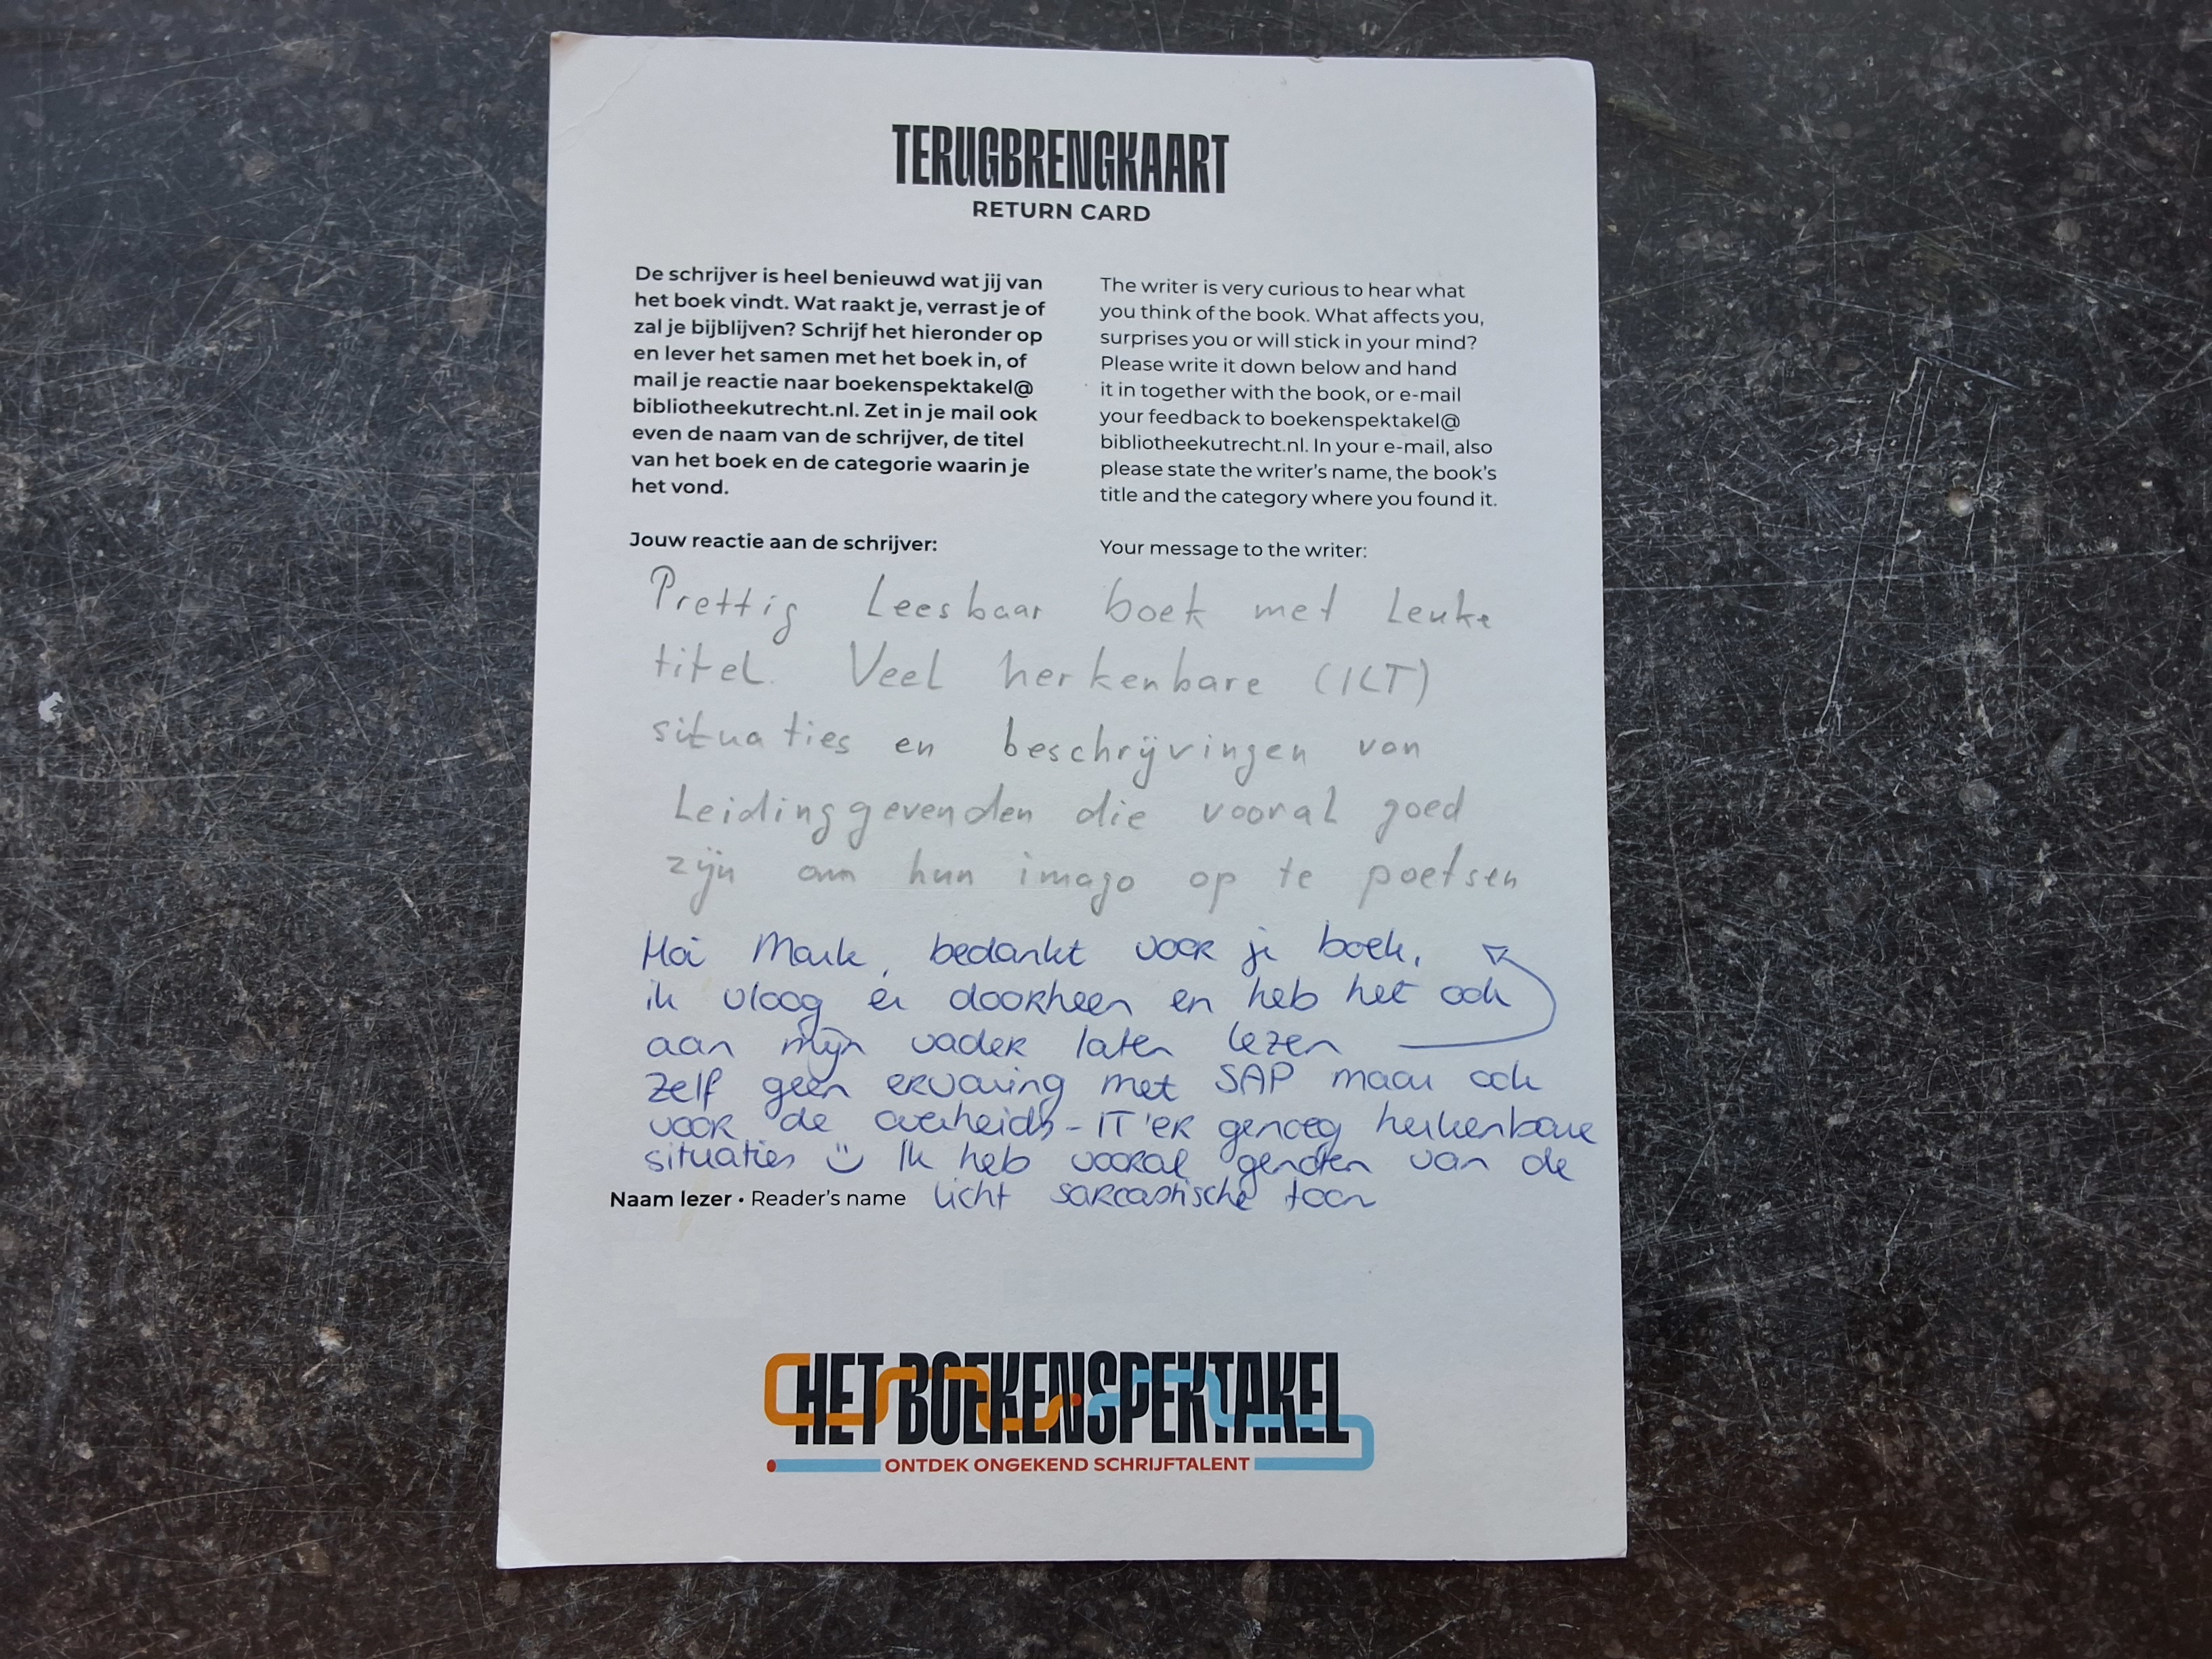 TERUGBRENGKAART
RETURN CARD
De schrijver is heel benieuwd wat jij van
het boek vindt. Wat raakt je, verrast je of
zal je bijblijven? Schrijf het hieronder op
en lever het samen met het boek in, of
mail je reactie naar boekenspektakel@
bibliotheekutrecht.nl. Zet in je mail ook
even de naam van de schrijver, de titel
van het boek en de categorie waarin je
het vond.
Jouw reactie aan de schrijver:
The writer is very curious to hear what
you think of the book. What affects you,
surprises you or will stick in your mind?
Please write it down below and hand
it in together with the book, or e-mail
your feedback to boekenspektakel@
bibliotheekutrecht.nl. In your e-mail, also
please state the writer's name, the book's
title and the category where you found it.
Your message to the writer:
Prettig Leesbaar boek met Leuke
titel. Veel herkenbare (ICT)
situaties en beschrijvingen van
Leidinggevenden die vooral goed
zijn om hun imago op te poetsen
Hoi Mark, bedankt voor je boek,
ik vloog er doorheen en heb het ook
aan mijn vader laten lezen
Zelf geen ervaring met SAP maar ook
voor de overheids-IT'er genoeg herkenbare
situaties Ik heb vooral genoten van de
licht sarcastische toon
Naam lezer • Reader's name
HET BOEKENSPEKTAKEL
ONTDEK ONGEKEND SCHRIJFTALENT